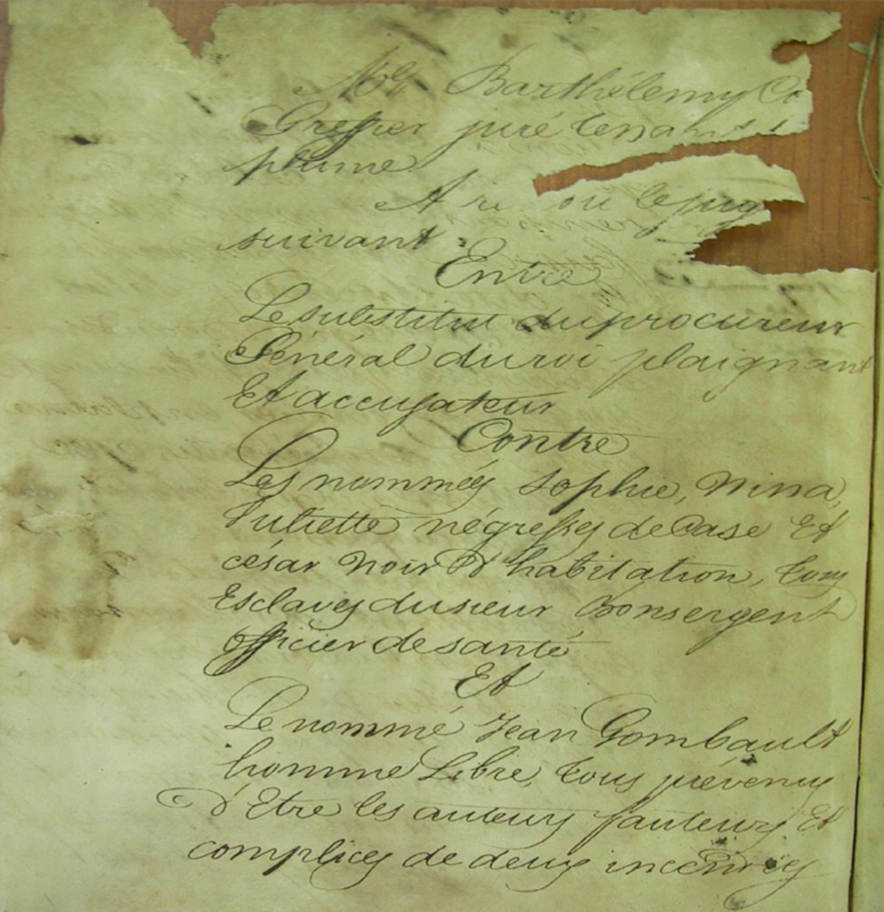 Me Barthélemy Co
Greffier juré tenant l
plume
A re ou le jug
suivant :
Entre
Le substitut du procureur
Général du roi plaignant
Et accusateur
Contre
Les nommés Sophie, Nina,
Juliette négresses de Case Et
césar Noir d'habitation, tous
Esclaves du sieur Bonsergent
officier de santé
Et
Le nommé Jean Gombault
homme Libre, tous prévenus
d'Etre les auteurs fauteurs Et
complices de deux incendies